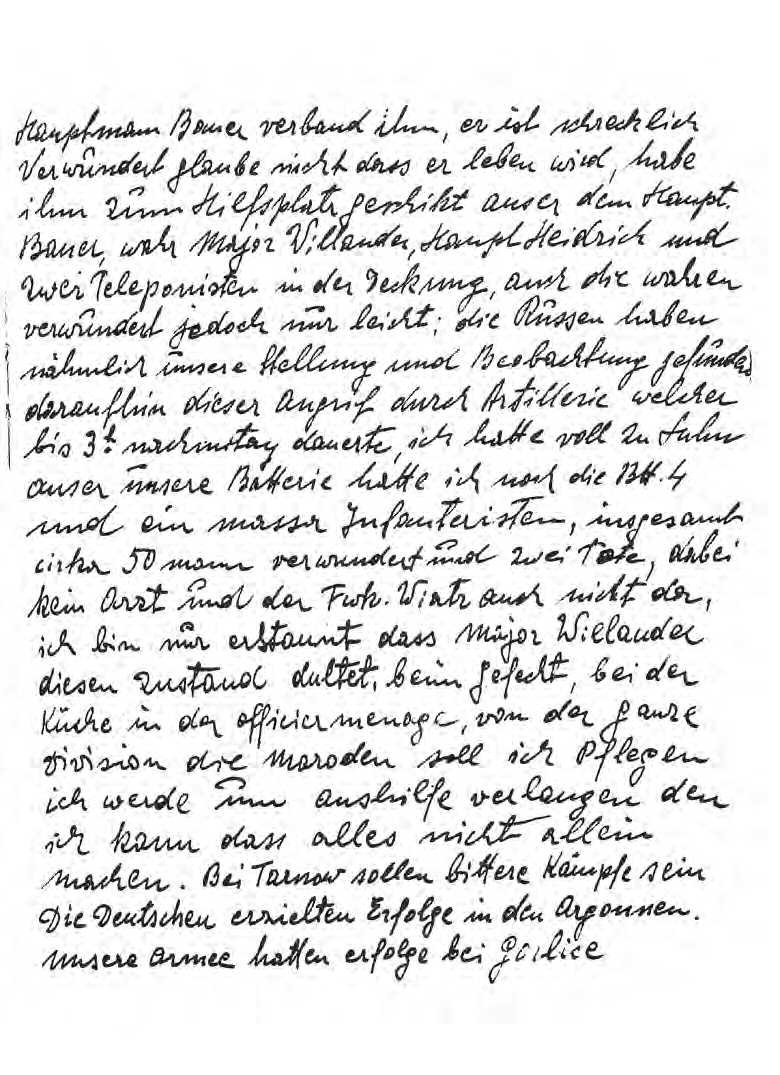 Hauptmann Bauer verband ihm, er ist schrecklich
Verwündert glaube nicht dass er leben wird, habe
ihm zum Hilfsplatz geschikt auser dem Haupt.
Bauer, wahr Major Villander, Haupt Heidrich und
zwei Teleponisten in der Deckung, auch die wahren
verwündert jedoch nür leicht; die Rüssen haben
nähmlich ünsere Stellung und Beobachtung gefünden
daraufhin dieser Angrif durch Artillerie welcher
bis 3h nachmitag dauerte, ich hatte voll zu tuhn
auser ünsere Batterie hatte ich noch die Btt. 4
und ein massa Infanteristen, insgesamt
cirka 50 mann verwundert ünd zwei Tote, dabei
kein Arzt ünd der Fwk. Wiatr auch nicht da,
ich bin nür erstaunt dass Major Willander
diesen zustand dultet, beim gefecht, bei der
Küche in der officiermenage, von der ganze
Division die Maroden soll ich Pflegen
ich werde üm aushilfe verlangen den
ich kann dass alles nicht allein
machen. Bei Tarnow sollen bittere Kämpfe sein
Die Deutschen erzielten Erfolge in den Argonnen.
Unsere Armee hatten erfolge bei Gorlice